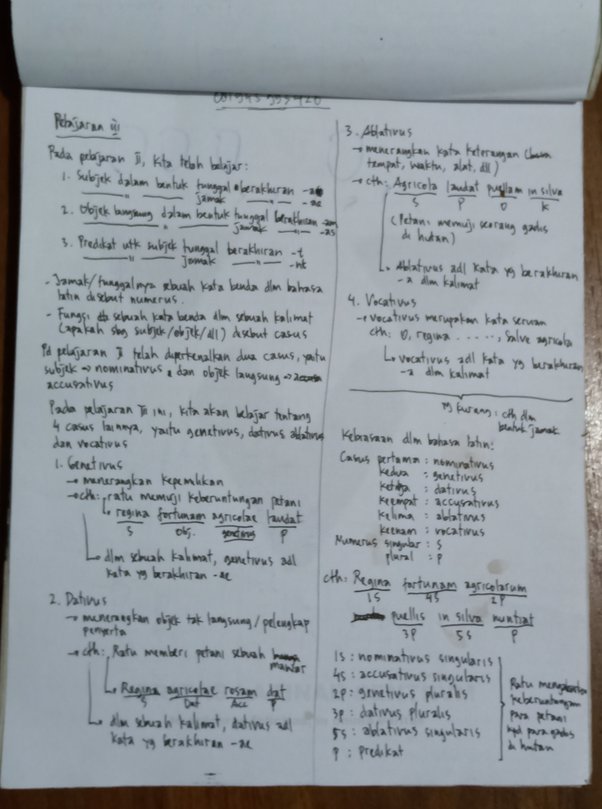 Pelajaran iji
Pada pelajaran II, kita telah belajar:
1. Subjek dalam bentuk tunggal berakhiran -a
jamak —"— -ae
2. Objek langsung dalam bentuk tunggal berakhiran -am
—"— jamak —"— -as
3. Predikat utk subjek tunggal berakhiran -t
—"— jamak —"— -nt
- Jamak/tunggalnya sebuah kata benda dlm bahasa
latin disebut numerus.
- Fungsi sebuah kata benda dlm sebuah kalimat
(apakah sbg subjek/objek/dll) disebut casus
Pd pelajaran II telah diperkenalkan dua casus, yaitu
subjek → nominativus, dan objek langsung →
accusativus
Pada pelajaran ini, kita akan belajar tentang
4 casus lainnya, yaitu genetivus, dativus ablativus
dan vocativus
1. Genetivus
→ menerangkan kepemilikan
→ cth: ratu memuji keberuntungan petani
regina fortunam agricolae laudat
S Obj. genetivus P
dlm sebuah kalimat, genetivus adl
kata yg berakhiran -ae
2. Dativus
→ menerangkan objek tak langsung/pelengkap
penyerta
→ cth: Ratu memberi petani sebuah
mawar
Regina agricolae rosam dat
S Dat Acc P
dlm sebuah kalimat, dativus adl
kata yg berakhiran -ae
3. Ablativus
→ menerangkan kata keterangan (
tempat, waktu, alat, dll)
→ cth: Agricola laudat puellam in silva
S P O K
(Petani memuji seorang gadis
di hutan)
Ablativus adl kata yg berakhiran
-a dlm kalimat
4. Vocativus
→ vocativus merupakan kata seruan
cth: O, regina ....., salve agricola
vocativus adl kata yg berakhiran
-a dlm kalimat
yg kurang: cth dlm
bentuk jamak.
Kebiasaan dlm bahasa latin:
Casus pertama : nominativus
kedua : genetivus
ketiga : dativus
keempat : accusativus
kelima : ablativus
keenam : vocativus
Numerus singular : S
plural : P
cth: Regina fortunam agricolarum
1S 4S 2P
puellis in silva nuntiat
3P 5S P
1S : nominativus singularis
4S : accusativus singularis
2P : genetivus pluralis
3P : dativus pluralis
5S : ablativus singularis
P : predikat
Ratu
keberuntungan
para petani
kpd para gadis
di hutan